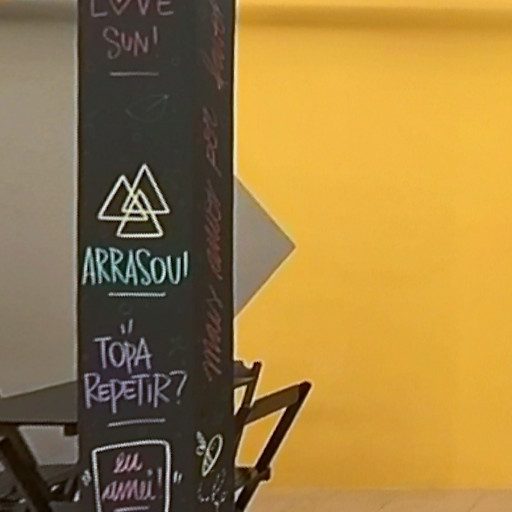 LOVE
SUN!
ARRASOU!
TOPA
REPETIR?
eu
amei!
mais amor por favor